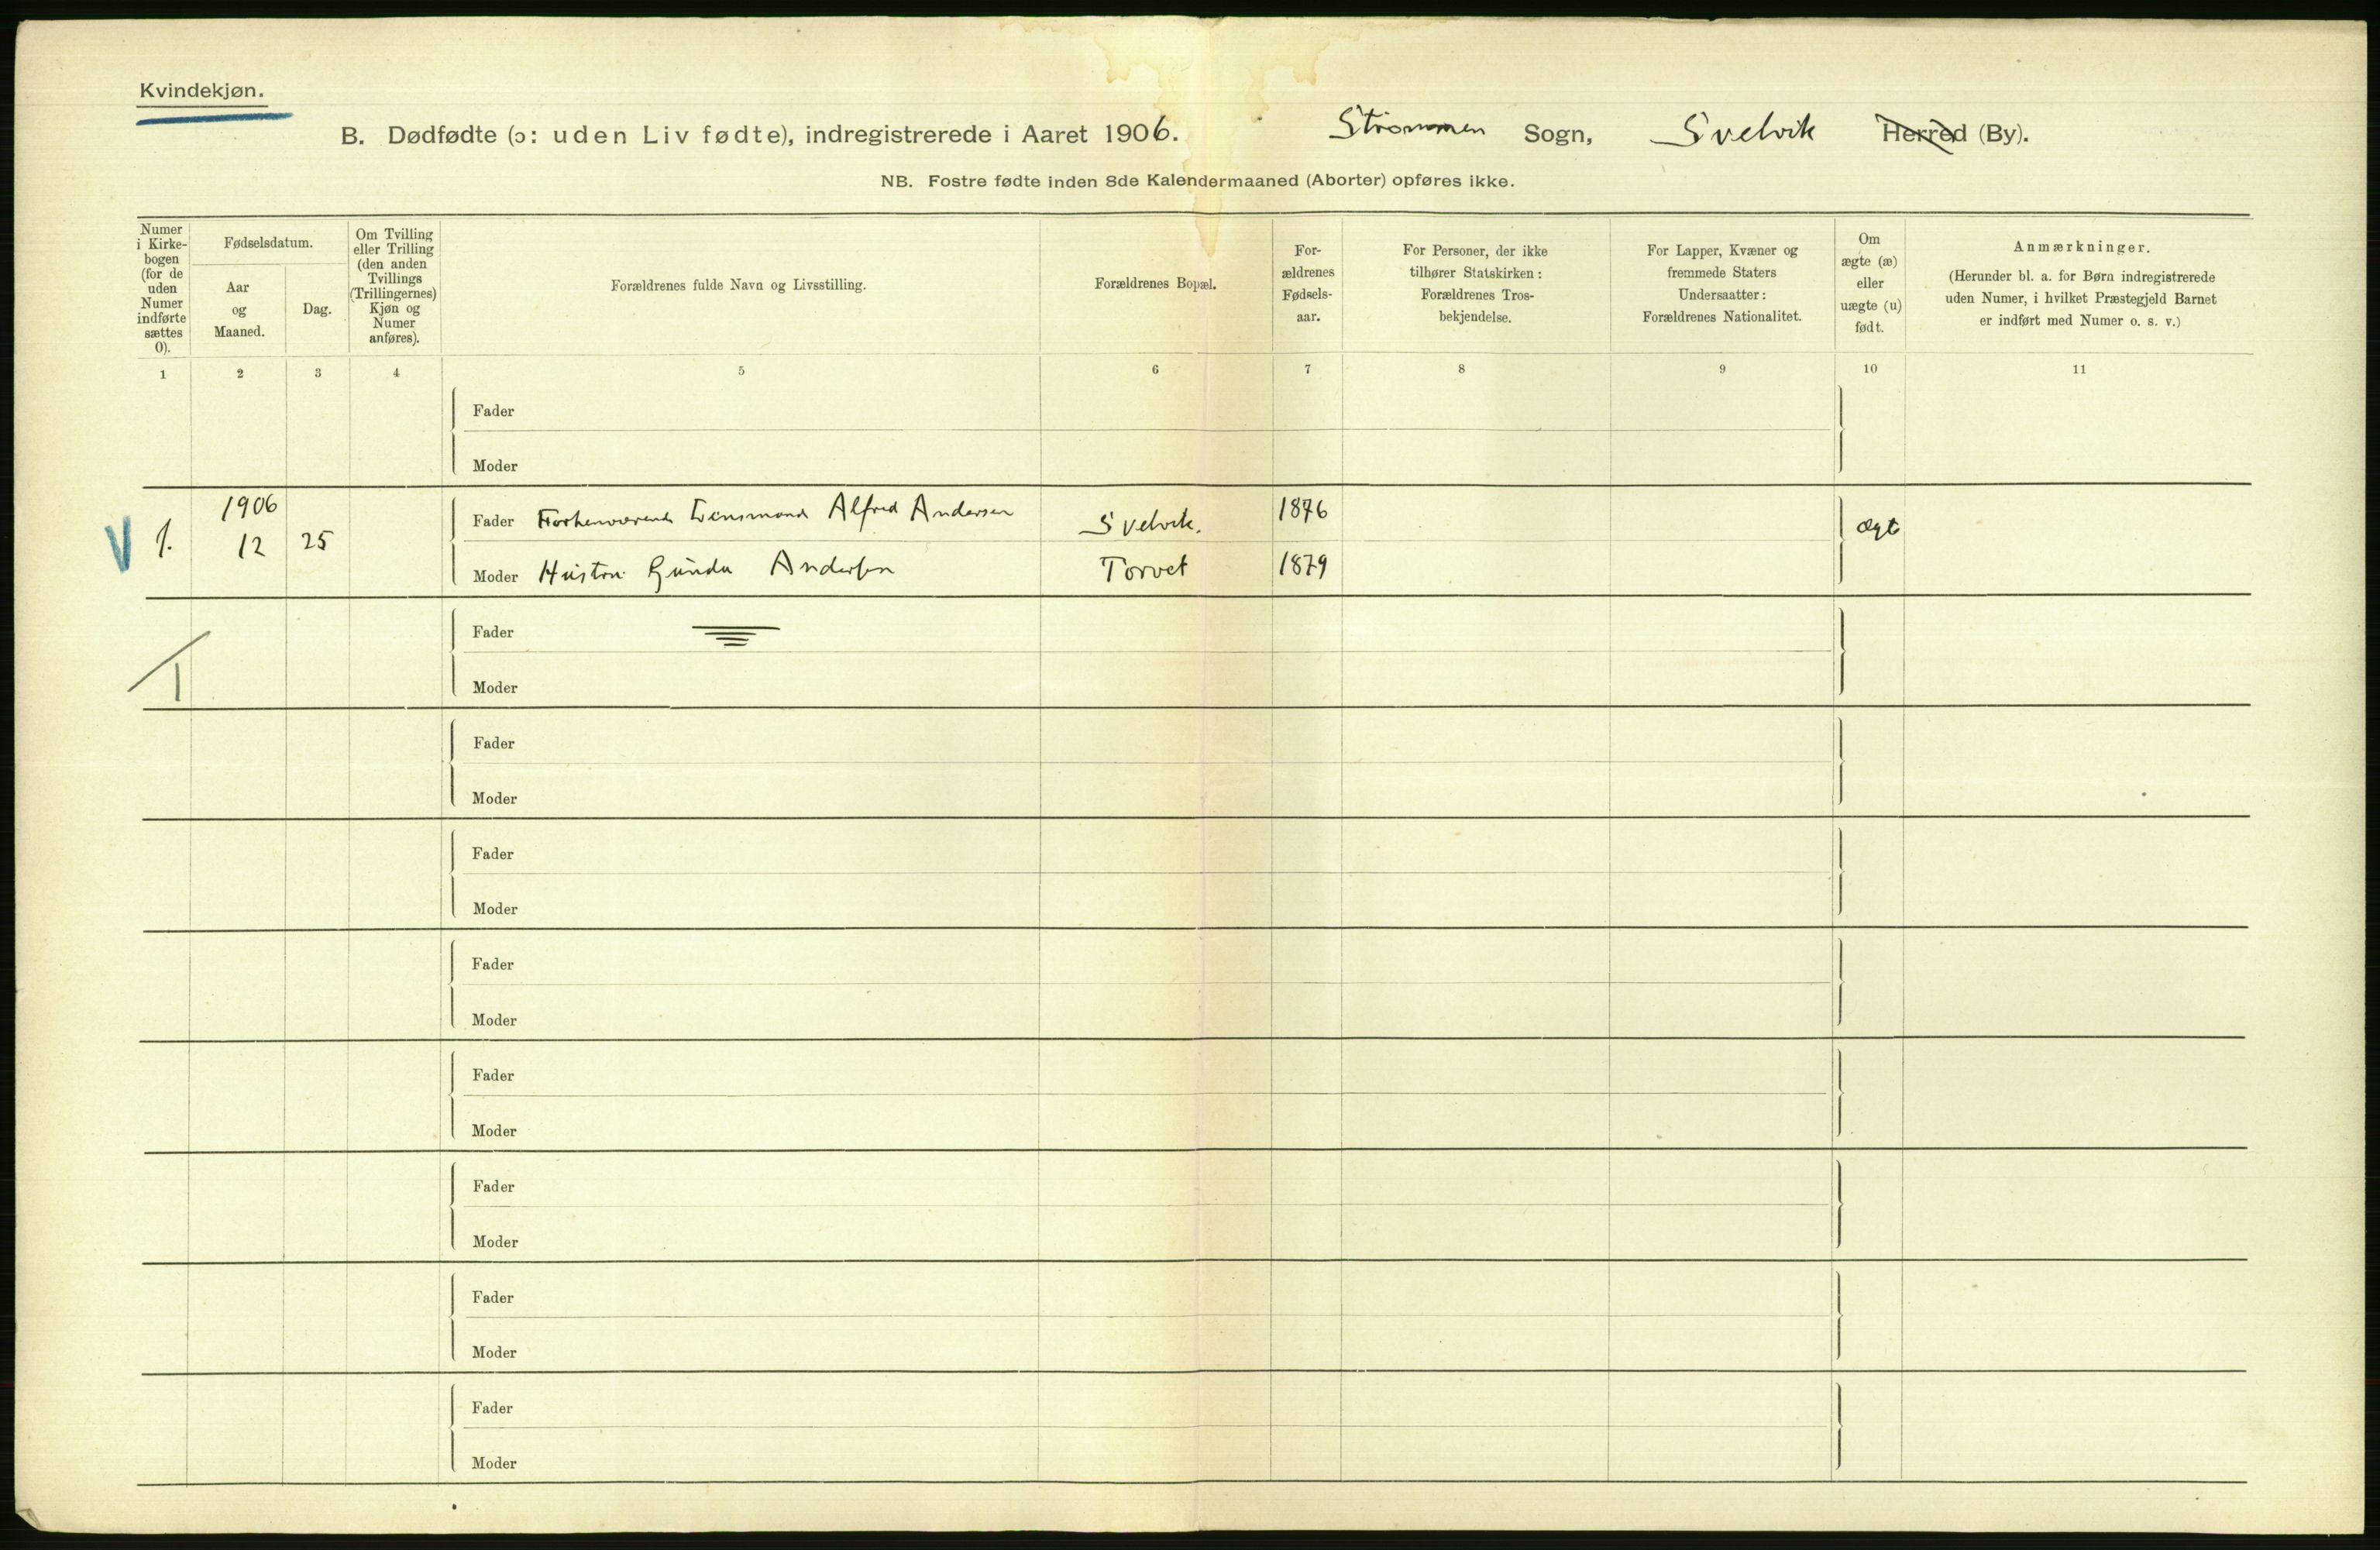 Kvindekjøn.
B. Dødfødte (ɔ: uden Liv fødte), indregistrerede i Aaret 1906. Strømmen Sogn, Svelvik Herred (By).
NB. Fostre fødte inden 8de Kalendermaaned (Aborter) opføres ikke.
Numer
i Kirke-
bogen
(for de
uden
Numer
indførte
sættes
0).
Fødselsdatum.
Aar
og
Maaned.
Dag.
Om Tvilling
eller Trilling
(den anden
Tvillings
(Trillingernes)
Kjøn og
Numer
anføres).
Forældrenes fulde Navn og Livsstilling.
Forældrenes Bopæl.
For-
ældrenes
Fødsels-
aar.
For Personer, der ikke
tilhører Statskirken:
Forældrenes Tros-
bekjendelse.
For Lapper, Kvæner og
fremmede Staters
Undersaatter:
Forældrenes Nationalitet.
Om
ægte (æ)
eller
uægte (u)
født.
Anmærkninger.
(Herunder bl. a. for Børn indregistrerede
uden Numer, i hvilket Præstegjeld Barnet
er indført med Numer o. s. v.)
1 2 3 4 5 6 7 8 9 10 11
Fader
Moder
1.
1906
12
25
Fader Forhenværende Alfred Andersen
Moder Hustru Gunda Andersen
Svelvik.
Torvet
1876
1879
ægte
Fader
Moder
Fader
Moder
Fader
Moder
Fader
Moder
Fader
Moder
Fader
Moder
Fader
Moder
Fader
Moder